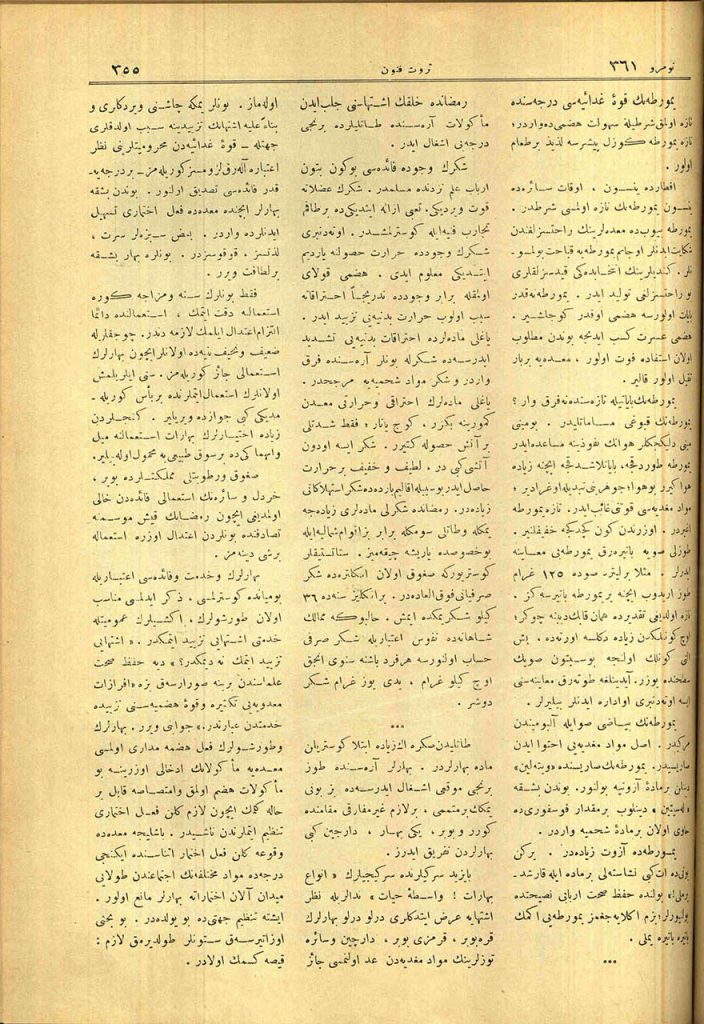 نومرو ٣٦١
ثروت فنون
٣٥٥
یمورطه‌نك قوهٔ غدائیه‌سی درجه‌سنده
تازه اولمق شرطیله سهولت هضمی ده واردر؛
تازه یمورطه كوزل پیشرسه لذیذ برطعام
اولور .
افطارده ینسون ، اوقات سائره‌ده
ینسون یمورطه‌نك تازه اولمسی شرطدر .
یمورطه سوب‌ده معده‌لرینك راحتسزلغندن
شكایت ایدنلر اوجاغم یمورطه‌یه قباحت بولمسو‌ـ
نلر . كندیلرینك انتخابده‌كی قیدسزلقلری
بو راحتسزلغی تولید ایدر . یمورطه نه‌قدر
بایات اولورسه هضمی اوقدر كوجلشیر .
هضمی عسرت كسب ایدنجه بوندن مطلوب
اولان استفاده فوت اولور ، معده‌یه بربار
ثقیل اولور قالیر .
یمورطه‌نك بایاتیله تازه‌سنده نه‌فرق وار ؟
یمورطه‌نك قبوغی مساماتلیدر . بومینی
مینی دلیكجكلر هوانك نفوذینه مساعده ایدر
یمورطه طوردقجه ، بایاتلاشدقجه ایچنه زیاده
هوا كیرر بوهوا؛ جوهرینی تبدیله اوغرادیر ؛
مواد مغدیه‌سی قوتنی غائب ایدر . تازه یمورطه
آغیردر . اوزرندن كون كچدكجه خفیفلنیر .
طوزلی صویه باتیره‌رق یمورطه‌یی معاینه
ایدرلر . مثلا برلیتره صوده ١٢٥ غرام
طوز اریدوب ایچنه بریمورطه باتیرسه‌كز .
تازه اولدیغی تقدیرده همان قابك دیبنه چوكر؛
اوچ كونلكدن زیاده دكلسه اورته‌ده . بش
آلتی كونلك اولنجه بوسبتون صویك
سطحنده یوزر. آیدینلغه طوته‌رق معاینه‌سنی
ایسه اوته‌دنبری اواداره ایدنلر بیلیرلر .
یمورطه‌نك بیاضی صوایله آلبومیندن
مركبدر . اصل مواد مغدیه‌یی احتوا ایدن
صاریسیدر. یمورطه‌نك صاریسنده «ویته‌لین»
دینلن برمادهٔ آزوتیه بولنور. بوندن بشقه
«له‌سیتین» دینلوب برمقدار فوسفوری‌ده
حاوی اولان برمادهٔ شحمیه واردر .
یمورطه‌ده آزوت زیاده‌در . یركن
یونی‌ده ات‌كی نشاسته‌لی برماده ایله قارشدـ
یرملی؛ یولنده حفظ صحت اربابی نصیحتده
بولنیورلر؛ بزم اكلایه‌جغمز یمورطه‌یی اكمك
باتیره باتیره یملی .
***
رمضانده خلقك اشتهاسنی جلب ایدن
مأكولات آره‌سنده طاتلیلرده برنجی
درجه‌یی اشغال ایدر .
شكرك وجوده فائده‌سی بوكون بتون
ارباب علم نزدنده مسلمدر . شكرك عضلاته
قوت ویردیكی . تعبی ازاله ایتدیكی‌ده برطاقم
تجارب فنیه‌ایله كوسترلمشدر . اوته‌دنبری
شكرك وجودده حرارت حصولنه یاردیم
ایتدیكی معلوم ایدی . هضمی قولای
اولمقله برابر وجودده تدریجاً احتراقاته
سبب اولوب حرارت بدنیه‌یی تزیید ایدر .
یاغلی ماده‌لرده احتراقات بدنیه‌یی تشدید
ایدرسه‌ده شكرله بونلر آره‌سنده فرق
واردر و شكر مواد شحمیه‌یه مرجحدر .
یاغلی ماده‌لرك احتراقی وحرارتی معدن
كمورینه بكزر ، كوچ یانار؛ فقط شدتلی
بر آتش حصوله كتیرر . شكر ایسه اودون
آتشی كبی در . لطیف و خفیف برحرارت
حاصل ایدر بوسببله اقالیم بارده‌ده شكر استهلاكاتی
زیاده‌در. رمضانده شكرلی ماده‌لری زیاده‌جه
یمكله وطاتلی سومكله برابر بزاقوام شمالیه‌ایله
بوخصوصده یاریشه چیقه‌میز . ستاتستیقلر
كوستریوركه صغوق اولان انكلتره‌ده شكر
صرفیاتی فوق‌العاده‌در. برانكلیز سنه‌ده ٣٦
كیلو شكر یمكده ایمش . حالبوكه ممالك
شاهانه‌ده نفوس اعتباریله شكر صرفی
حساب اولنورسه هرفرد باشنه سنوی آنجق
اوچ كیلو غرام ، یدی یوز غرام شكر
دوشر .
***
طاتلیدن صكره اك‌زیاده ابتلا كوستریلن
ماده بهارلردر. بهارلر آره‌سنده طوز
برنجی موقعی اشغال ایدرسه‌ده بز بونی
یمكك برمتممی ، برلازم غیرمفارقی مقامنده
كورر وبوبر ، یكی بهار ، دارچین كبی
بهارلردن تفریق ایدرز .
بایزید سركیلرنده سركیجیلرك «انواع
بهارات ! واسطهٔ حیات» ندالریله نظر
اشتهایه عرض ایتدكلری درلو درلو بهارلرك
قره‌بوبر ، قرمزی بوبر ، دارچین وسائره
توزلرینك مواد مغدیه‌دن عد اولنمسی جائز
اوله‌ماز . بونلر یمكه چاشنی ویردكلری و
بناءً علیه اشتهانك تزییدینه سبب اولدقلری
جهتله - قوهٔ غدائیه‌دن محرومیتلرینی نظر
اعتباره آله‌رق لزومسز كوریله‌مز - بردرجه‌یه
قدر فائده‌سی تصدیق اولنور . بوندن بشقه
بهارلر ایچنده معده‌ده فعل اختماری تسهیل
ایدنلرده واردر . بعض سبزه‌لر سرت ،
لذتسز ، قوقوسزدر . بونلره بهار بشقه
برلطافت ویرر .
فقط بونلرك سنه ومزاجه كوره
استعمالنه دقت ایتمك ، استعمالنده دائما
التزام اعتدال ایلمك لازمه دندر. چوجقلرله
ضعیف ونحیف بنیه‌ده اولانلر ایچون بهارلرك
استعمالی جائز كوریله‌مز. سنی ایلریلمش
اولانلرك استعمال ایتملرنده برباس كوریله‌ـ
مدیكی كبی جوازده ویریلیر . كنجلردن
زیاده اختیارلرك بهارات استعمالنه میل
وانهماكی‌ده برسوق طبیعی‌یه محمول اوله‌بیلیر.
صغوق ورطوبتلی مملكتلرده بوبر ،
خردل و سائره‌نك استعمالی فائده‌دن خالی
اولمدیغی ایچون رمضانك قیش موسمنه
تصادفنده بونلردن اعتدال اوزره استعماله
برشی دینه‌مز .
بهارلرك وخدمت وفائده‌سی اعتباریله
بومیانده كوسترلمسی . ذكر ایدلمسی مناسب
اولان طورشولرك ، اكشیلرك عمومیتله
خدمتی اشتهایی تزیید ایتمكدر . «اشتهایی
تزیید ایتمك نه دیمكدر؟» دیه حفظ صحت
علماسندن برینه صورارسه‌ق بزه «افرازات
معدویه‌یی تكثیره وقوهٔ هضمیه‌سنی تزییده
خدمتدن عبارتدر.» جوابی ویرر . بهارلرك
وطورشولرك فعل هضمه مداری اولمسی
معده‌یه مأكولاتك ادخالی اوزرینه بو
مأكولات هضم اولمق وامتصاصه قابل بر
حاله كلمك ایچون لازم كلن فعل اختماری
تنظیم ایتملرندن ناشیدر . باشلیجه معده‌ده
وقوعه كلن فعل اختمار اثناسنده ایكنجی
درجه‌ده مواد مختلفه‌نك اجتماعندن طولایی
میدان آلان اختماراته بهارلر مانع اولور .
ایشته تنظیم جهتی‌ده بو یولده‌در . بو بحثی
اوزاتیرسه‌ق ستونلر طولدیرمق لازم :
قیصه كسمك اولادر .